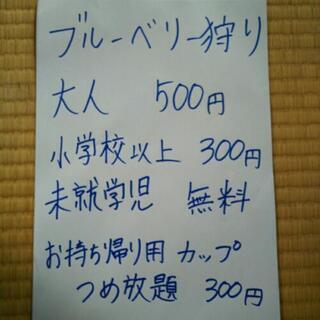 ブルーベリー狩り
大人 500円
小学校以上 300円
未就学児 無料
お持ち帰り用 カップ
つめ放題 300円